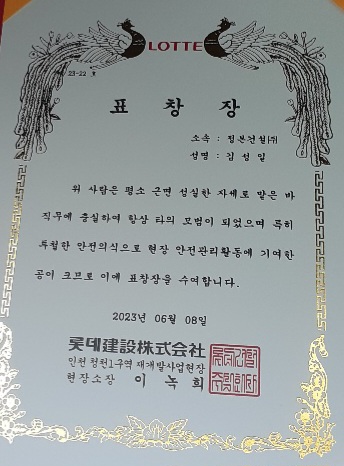 LOTTE
23-22 호
표 창 장
소속 : 정본건설㈜
성명 : 김성일
위 사람은 평소 근면 성실한 자세로 맡은 바
직무에 충실하여 항상 타의 모범이 되었으며 특히
투철한 안전의식으로 현장 안전관리활동에 기여한
공이 크므로 이에 표창장을 수여합니다.
2023년 06월 08일
롯데建設株式会社
인천 청천1구역 재개발사업현장
현장소장 이녹희